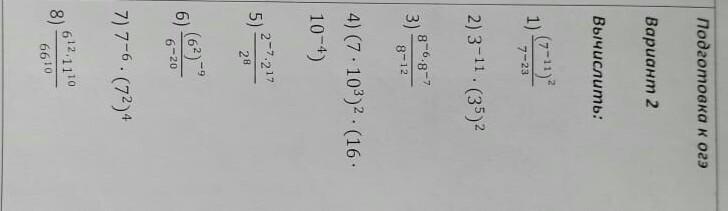 Подготовка к огэ
Вариант 2
Вычислить:
1) \frac{(7^{-11})^2}{7^{-23}}
2) 3^{-11} · (3^5)^2
3) \frac{8^{-6}·8^{-7}}{8^{-12}}
4) (7 · 10^3)^2 · (16 ·
10^{-4})
5) \frac{2^{-7}·2^{17}}{2^8}
6) \frac{(6^2)^{-9}}{6^{-20}}
7) 7^{-6} · (7^2)^4
8) \frac{6^{12}·11^{10}}{66^{10}}